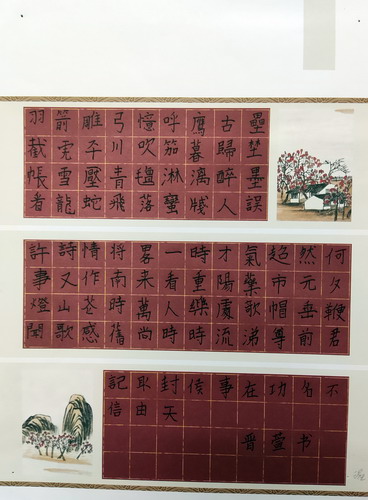 羽箭雕弓憶呼鷹古壘
截虎平川吹笳暮歸埜
帳雪壓青氊淋漓醉墨
看龍蛇飛落蠻牋人誤
許詩情將畧一時才氣超然何
事又作南来看重陽藥市元夕
燈山苍時萬人樂處歌帽垂鞭
聞歌感舊尚時時流涕尊前君
記取封侯事在功名不
信由天
晋萱书